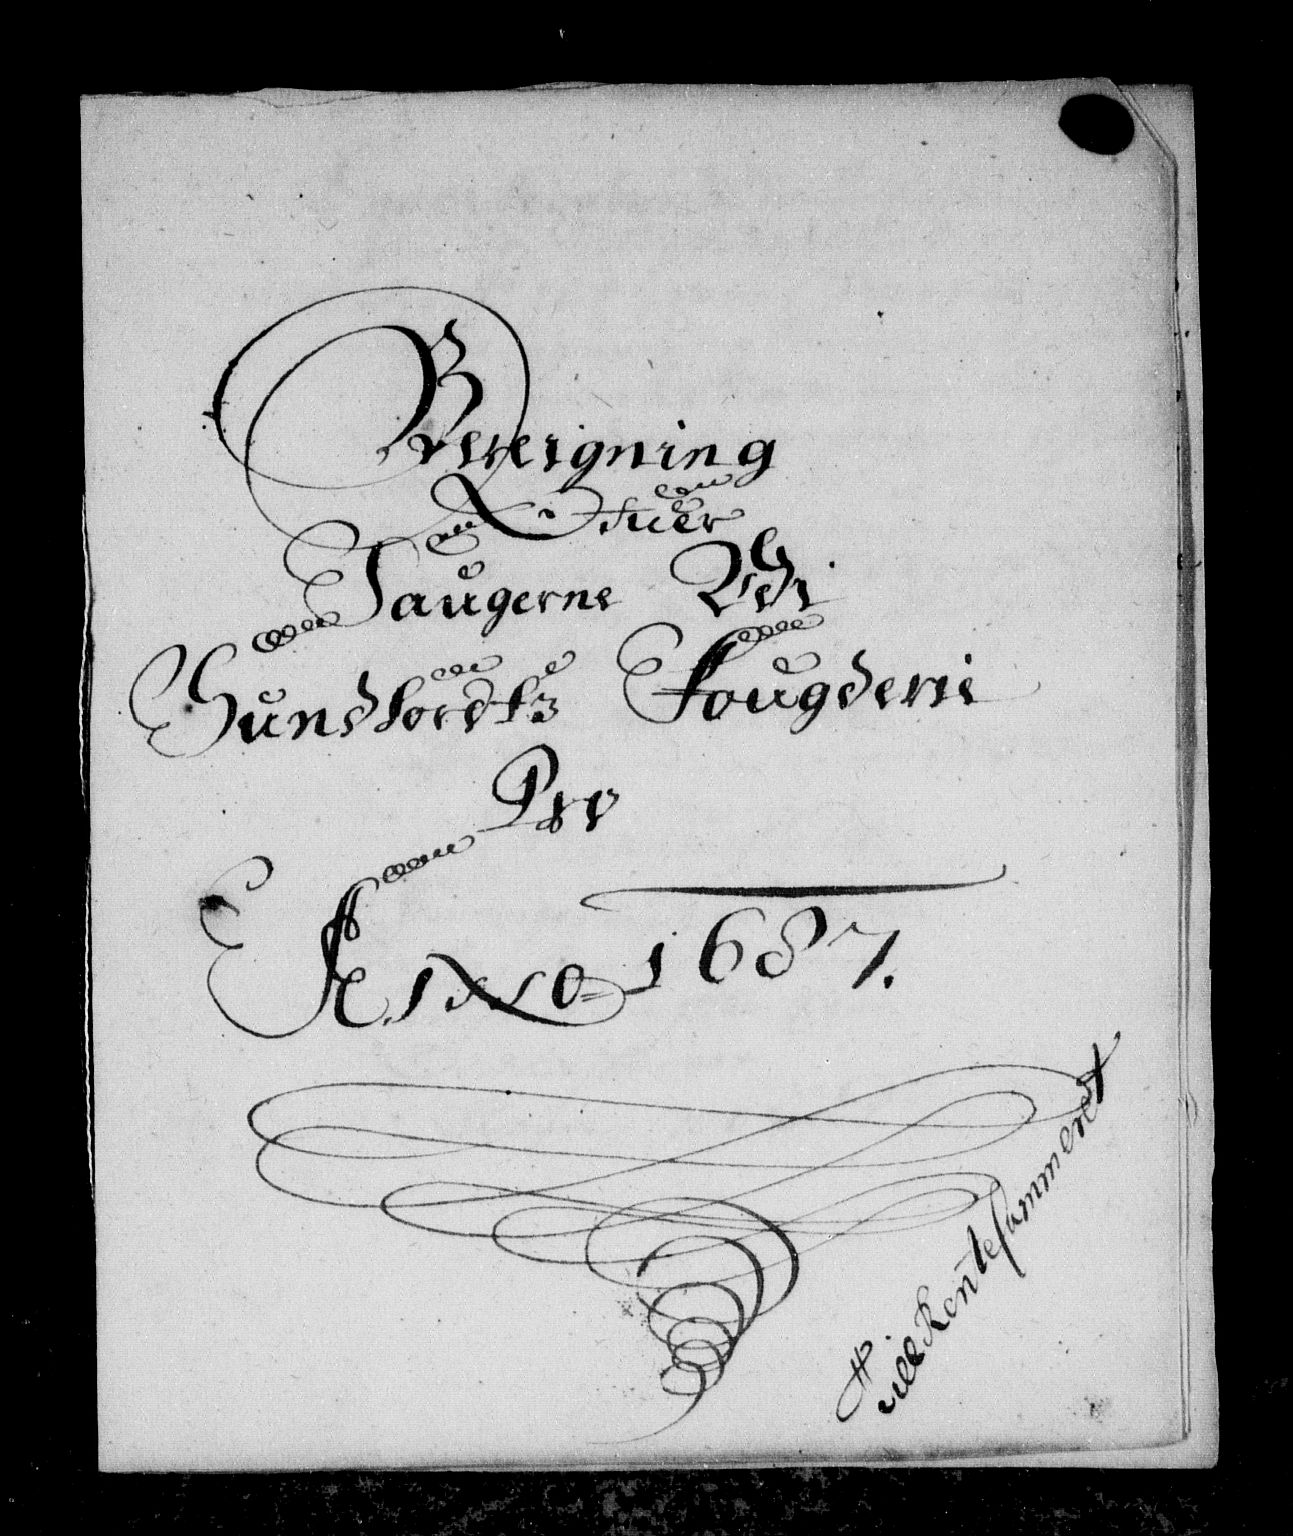 Bereigning
Ofuer
Saugerne Udi
Sundfordtz Fougderie
Pro
Anno 1687.
Till Rentecammeret